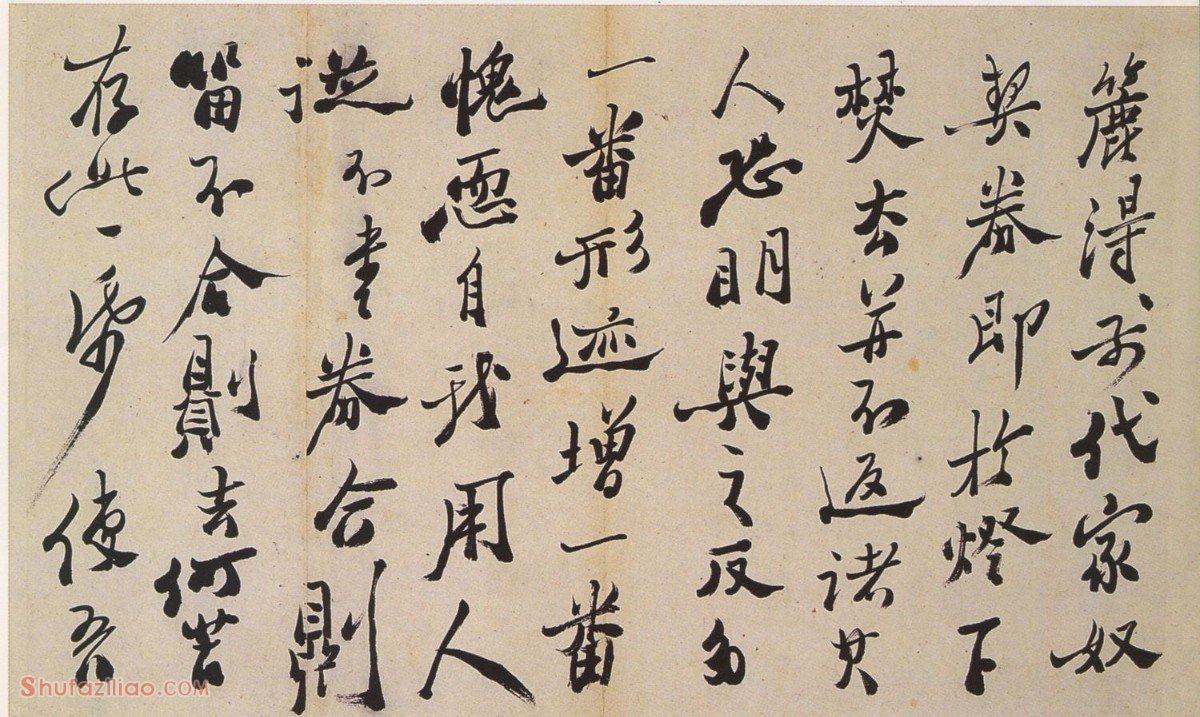 簏得前代家奴
契券即於燈下
焚去并不返諸其
人恐明與之反多
一番形迹增一番
愧恧自我用人
從不書券合則
留不合則去何苦
存此一紙使吾
Shufaziliao.com